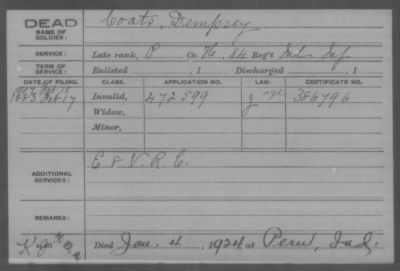 DEAD
NAME OF SOLDIER:
Coats, Dempsey
SERVICE:
Late rank, P Co. H, 54 Reg't Ind Inf
TERM OF SERVICE:
Enlisted , 1 Discharged , 1
DATE OF FILING. CLASS. APPLICATION NO. LAW. CERTIFICATE NO.
1883 Feb 17 Invalid, 472599 386796
Widow,
Minor,
ADDITIONAL SERVICES:
E & V.R.C.
REMARKS:
Died Jan. 4, 1924, at Peru, Ind.